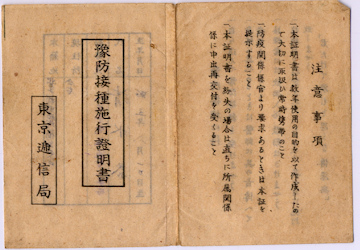 注意事項
一、本証明書は数年使用の目的を以て作成したもの
て大切に取扱ひ常時携帯のこと
一、防疫関係係官より要求あるときは本証を
提示すること
一、本証明書を紛失の場合は直ちに所属関係
係に申出再交付を受くること
豫防接種施行證明書
東京逓信局